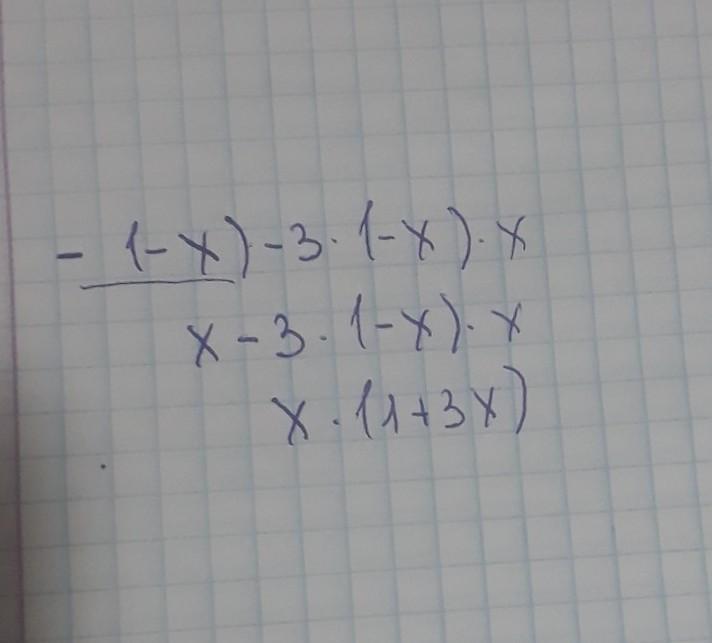 - (-x) - 3 · (-x) · x
x - 3 · (-x) · x
x · (1 + 3x)